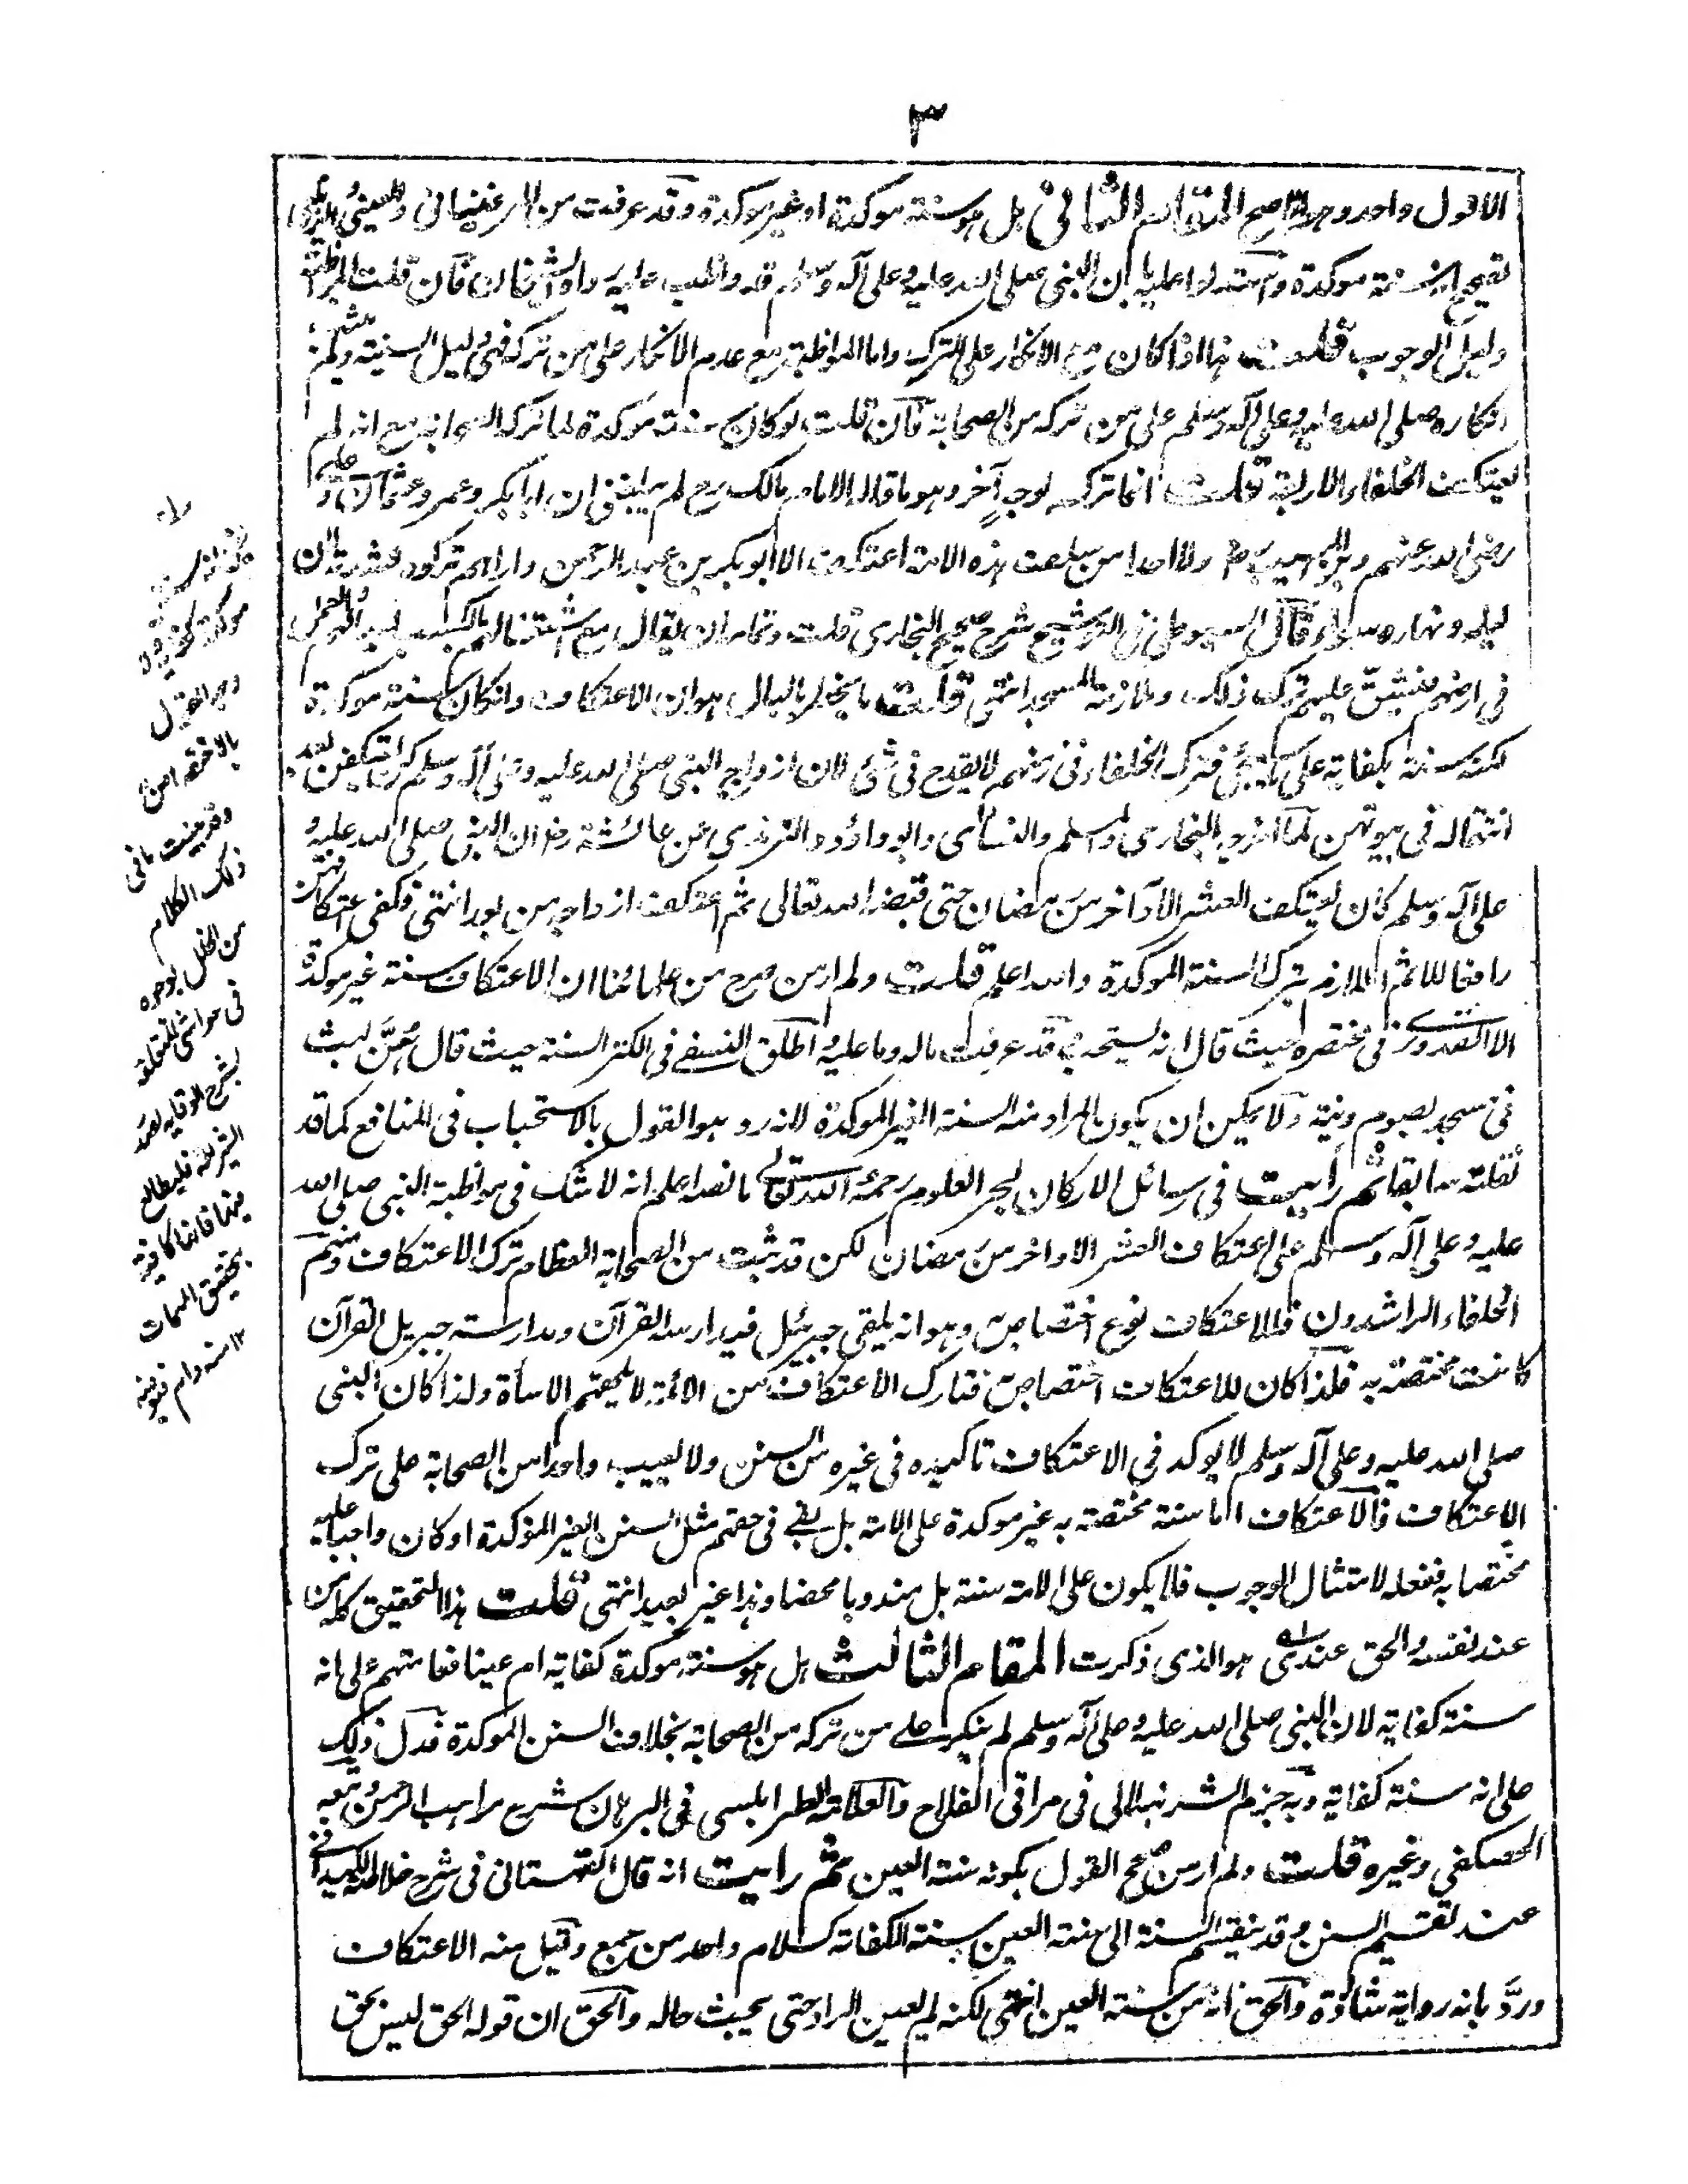 ٣
الا قول واحد وهو الاصح المقام الثانى هل هو سنة موكدة او غير موكدة وقد عرفت من المرغينانى والعينى والزيلعى
تصحيح انه سنة موكدة واستدلوا عليه بان النبى صلى الله عليه وعلى آله وسلم قد واظب عليه فان قلت المواظبة
دليل الوجوب قلت هذا اذا كان مع الانكار على الترك واما المواظبة مع عدم الانكار على من تركه فهى دليل السنية ولم يثبت
انكاره صلى الله عليه وعلى آله وسلم على من تركه من الصحابة فان قلت لو كان سنة موكدة لما تركه الصحابة مع انه لم
يعتكف الخلفاء الاربعة قلت انما تركه لوجه آخر وهو ما قال الامام مالك رح لم يبلغنى ان ابا بكر وعمر وعثمان و
رضى الله عنهم وابن المسيب رح ولا احدا من سلف هذه الامة اعتكف الا ابو بكر بن عبد الرحمن واراهم تركوه لشدته لان
ليله ونهاره سواء وقال السيوطى فى التوشيح شرح صحيح البخارى قلت وتمامه ان يقال مع اشتغالهم بالكسب لعيالهم والعمل
فى ارضهم فيشق عليهم ترك ذلك وملازمة المسجد انتهى قلت ما يخطر بالبال هو ان الاعتكاف وان كان سنة موكدة
لكنه سنة كفاية على ما سيجئ فترك الخلفاء فى زمنهم لا يقدح فى شئ لان ازواج النبى صلى الله عليه وعلى آله وسلم كن يعتكفن بعد
انتقاله فى بيوتهن لما اخرجه البخارى ومسلم والنسائى وابو داؤد والترمذى عن عائشة رض ان النبى صلى الله عليه و
على آله وسلم كان يعتكف العشر الاواخر من رمضان حتى قبضه الله تعالى ثم اعتكف ازواجه من بعده انتهى فكفى اعتكافهن
رافعا للاثم اللازم بترك السنة الموكدة والله اعلم قلت ولم ار من صرح من علمائنا ان الاعتكاف سنة غير موكدة
الا القدورى فى مختصره حيث قال انه يستحب وقد عرفت ماله وما عليه واطلق النسفى فى الكنز السنة حيث قال سُنَّ لبث
فى مسجد بصوم ونية ولا يمكن ان يكون المراد منه السنة الغير الموكدة لانه رد وهو القول بالاستحباب فى المنافع كما قد
نقلته سابقا ثم رأيت فى رسائل الاركان لبحر العلوم رحمه الله تعالى ما نصه اعلم انه لا شك فى مواظبة النبى صلى الله
عليه وعلى آله وسلم على اعتكاف العشر الاواخر من رمضان لكن قد ثبت من الصحابة العظام ترك الاعتكاف ومنهم
الخلفاء الراشدون فللاعتكاف نوع اختصاص وهو انه يلقى جبرئيل فيدارسه القرآن ومدارسته جبريل القرآن
كانت مختصة به فلذا كان للاعتكاف اختصاص فتارك الاعتكاف من الامة لا يلحقهم الاساءة ولذا كان النبى
صلى الله عليه وعلى آله وسلم لا يوكد فى الاعتكاف تاكيده فى غيره من السنن ولا يعيب واحدا من الصحابة على ترك
الاعتكاف فالاعتكاف اما سنة مختصة به غير موكدة على الامة بل بقى فى حقهم مثل السنن الغير المؤكدة او كان واجبا عليه
مختصا به ففعله لامتثال الوجوب فلا يكون على الامة سنة بل مندوبا محضا وهذا غير بعيد انتهى قلت هذا التحقيق كله من
عند نفسه والحق عندى هو الذى ذكرت المقام الثالث هل هو سنة موكدة كفاية ام عينا فعامتهم على انه
سنة كفاية لان النبى صلى الله عليه وعلى آله وسلم لم ينكر على من تركه من الصحابة بخلاف السنن الموكدة فدل ذلك
على انه سنة كفاية وبه جزم الشرنبلالى فى مراقى الفلاح والعلامة الطرابلسى فى البرهان شرح مواهب الرحمن وتبعه
الحصكفى وغيره قلت ولم ار من صحح القول بكونه سنة العين ثم رأيت انه قال القهستانى فى شرح خلاصة الكيدانى
عند تقسيم السنن وقد ينقسم السنة الى سنة العين وسنة الكفاية كسلام واحد من جمع وقيل منه الاعتكاف
وردّ بانه رواية شاذة والحق انه من سنة العين انتهى لكنه لم يعين الراد حتى يبحث حاله والحق ان قوله الحق ليس بحق
وجه القول
وقد بينت ما فى
ذلك الكلام
من الخلل بوجوه
فى حواشى المتعلقة
بشرح الوقاية لصدر
الشريعة فليطالع
فانها كافية
بتحقيق المهمات
١٢ منه دام فيوضه